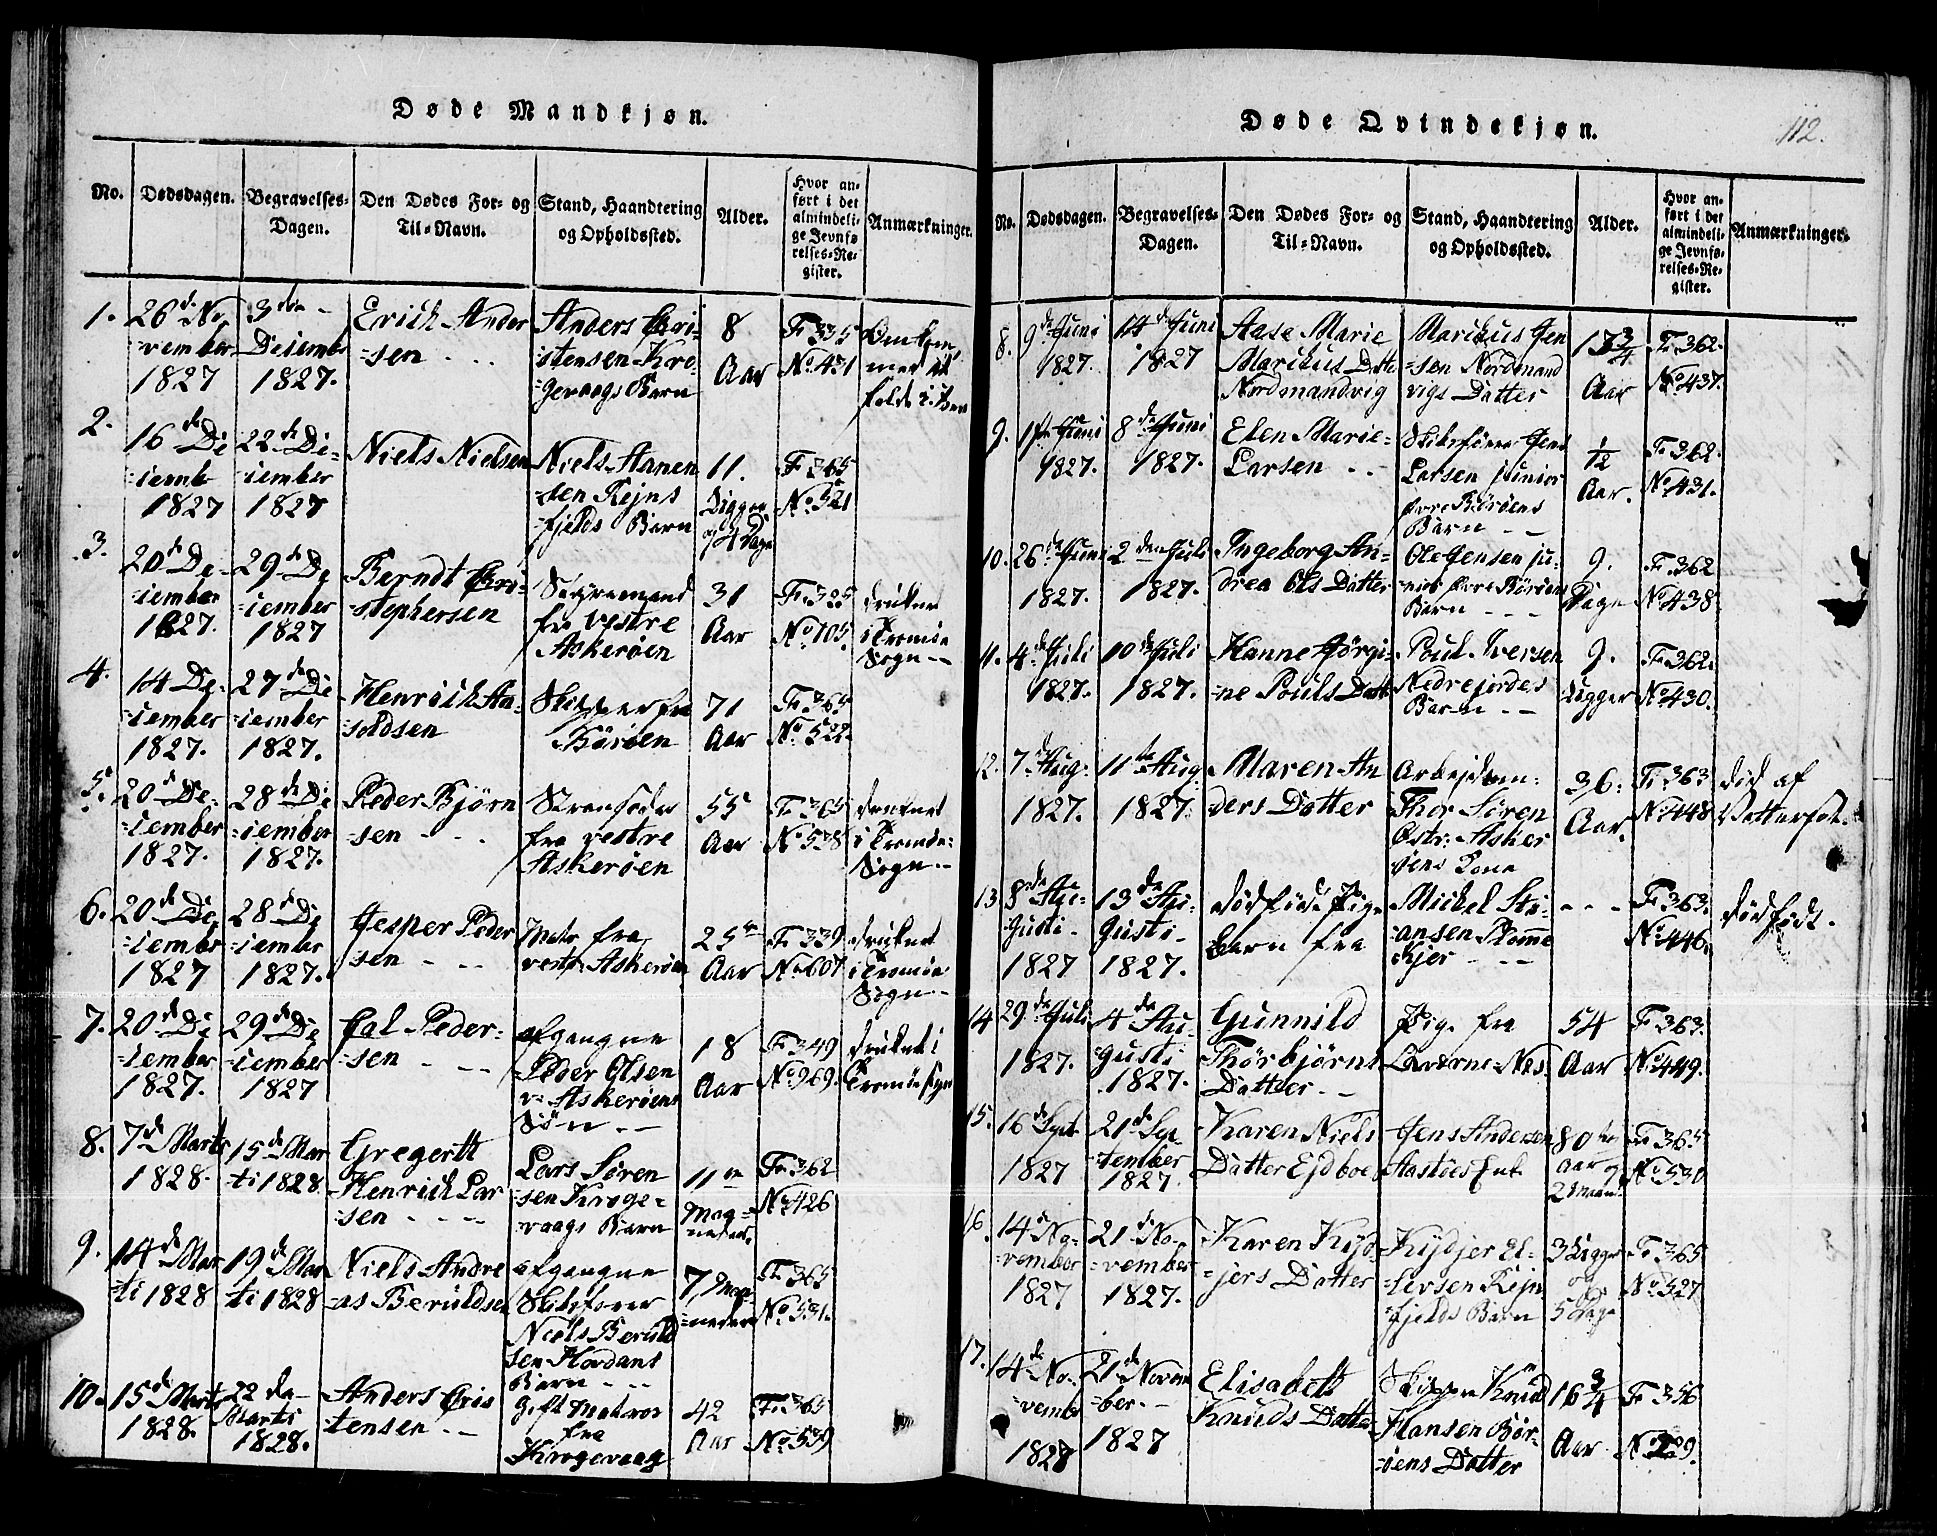 Døde Mandkjøn.
No. Dødsdagen. Begravelses-Dagen. Den Dødes For- og Til-Navn. Stand, Haandtering og Opholdssted. Alder. Hvor anført i det almindelige Jevnførelses-Register. Anmærkninger.
1. 26de November 1827 3die Deiember 1827. Erich Andersen Anders Christensen Krogevaags Barn 8 Aar F. 335 No. 431
2. 16de Deiemb 1827 22de Deiember 1827 Niels Nielsen Niels Aanensen Rejnsfjelds Barn 11. Uger og 4 Dage F. 365 No. 521
3. 20de Deiember 1827. 29de Deiember 1827 Berndt Christophersen fra vestre Askerøen 31 Aar F. 325 No. 105 druknet i Tromøe Sogn
4. 14 Deiember 1827. 27de Deiember 1827. Henrich Aasoldsen Skipper fra Børøen 71 Aar F. 365 No. 522
5. 20de Deiember 1827. 28de Deiember 1827. Peder Bjørnsen Strandsidder fra vestre Askerøen 55 Aar F. 365 No. 538 druknet i Tromøe Sogn
6. 20de Deiember 1827 28de Deiember 1827. Jesper Pedersen Matr fra vestr Askerøen 25 Aar F. 339 No. 607 druknet i Tromøe Sogn
7. 20de Deiember 1827. 29de Deiember 1827 Fal Pedersen afgangne Peder Olsen v. Askerøens Søn 18 Aar F. 349 No. 969. druknet i Tromøe Sogn
8. 7de Marts 1828. 15de Marti 1828 Gregertt Henrich Larsen Lars Sørensen Krogevaags Barn 11 Maaneder F. 362 No. 426
9. 14de Marti 1828 19de Marti 1828 Niels Andreas Beruldsen afgangne Skibsfører Niels Beruldsen Hordans Barn 7 Maaneder F. 365 No. 531.
10. 15de Marts 1828. 22da Marti 1828. Anders Christensen gift Matros fra Krogevaag 42 Aar F. 365 No. 539
Døde Qvindekjøn.
112.
No. Dødsdagen. Begravelses-Dagen. Den Dødes For- og Til-Navn. Stand, Haandtering og Opholdssted. Alder. Hvor anført i det almindelige Jevnførelses-Register. Anmærkninger.
8. 9de Juni 1827. 14de Juni 1827 Aase Marie Marikus Datter Nordmandvig Marikus Jensen Nordmandvigs Datter Aar F. 362. No. 437.
9. 1ste Juni 1827. 8de Juni 1827. Elen Marie Larsen Skibsfører Jens Larsen junior øvre Børøens Barn 1/2 Aar. F. 362. No. 431.
10. 26de Juni 1827. 2den Juli 1827. Ingeborg Andrea Ols Datter Ole Jensen junior øvre Børøens Barn 9. Dage F. 362 No. 438
11. 4de Juli 1827. 10de Juli 1827. Hanne Jørgine Pouls Datt Poul Iversen Nedrejordes Barn 9. Uger F. 362. No. 430.
12. 7de Aug. 1827. 11te Aug 1827. Maren Anders Datter Arbejdsm: Thor Søren Østr: Askerøens Kone 36. Aar. F. 363 No. 448 død af Vattersot.
13 8de Augusti 1827 13de Augusti 1827. dødfødt Pigebarn fra Mickel Stiansen Blommekjer - - - F. 363. No. 446. dødfødt.
14 29de Juli 1827. 4de Augusti 1827. Gunnild Thorbjørns Datter Pige fra Nes. 54 Aar F. 363. No. 449.
15. 16de Sept 1827 21de September 1827. Karen Niels Datter Ejdboe Jens Andersen Enke 80 Aar og 2 Maan F. 365 No. 530
16. 14de November 1827 21de November 1827. Karen Kydjers Datter Kydjer Ellevsen Rejnfjelds Barn 3 Uger og 5 Dage F. 365 No. 527
17. 14de Novemb 1827 21de November. 1827 Elisabeth Knuds Datter Skipper Knud Hansen Børøens Datter 16 3/4 Aar F. 356 No. 229.